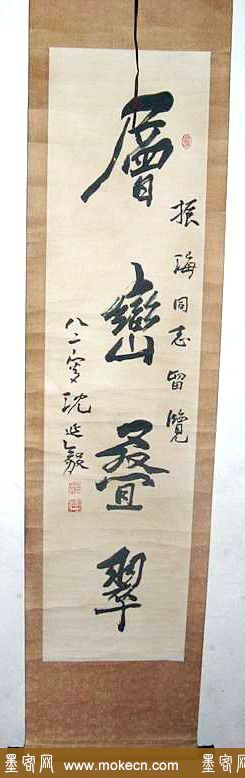 振海同志留覽
層巒叠翠
八二叟沈延毅
墨客网 www.mokecn.com 墨客网